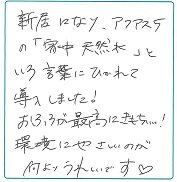 新居になり、アクアスラ
の「家中 天然水」と
いう言葉にひかれて
導入しました!
おふろが最高にきもちい!
環境にやさしいのが
何よりうれしいです♡